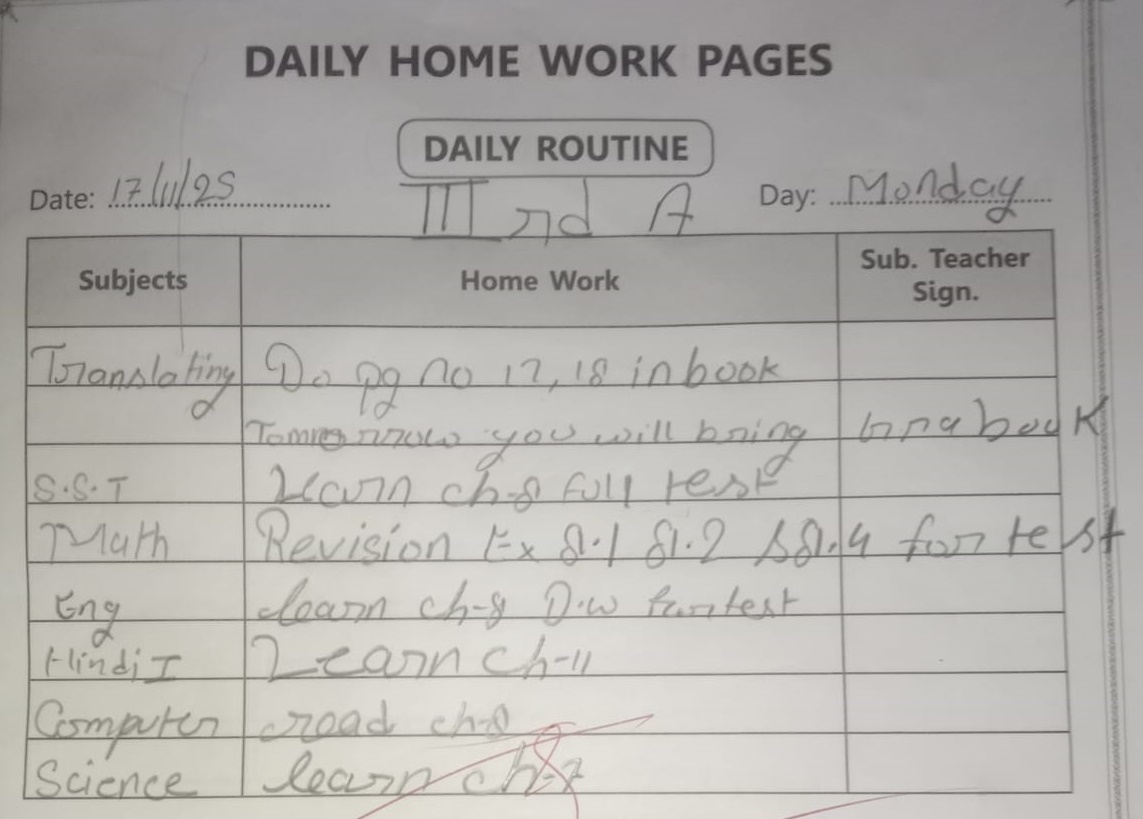 DAILY HOME WORK PAGES
DAILY ROUTINE
Date: 17/11/25 III rd A Day: Monday
Subjects Home Work Sub. Teacher Sign.
Translating Do pg no 17, 18 in book
Tomorrow you will bring book
S.S.T Learn ch-8 full test
Math Revision Ex 8.1 8.2 8.4 for test
Eng learn ch-8 D.w for test
Hindi I Learn ch-11
Computer read ch-8
Science learn ch-7